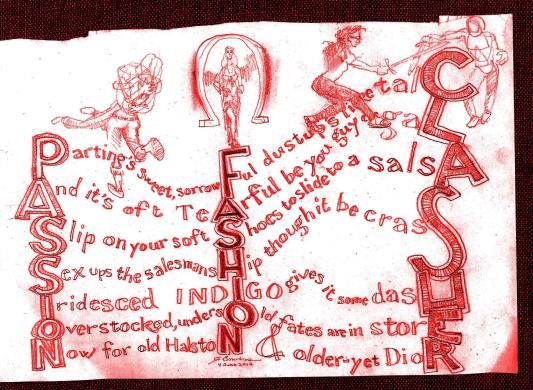 Parting's sweet, sorrowFul dustups like talC
And it's oft TeArful be you guy or gaL
Slip on your soft Shoes to slide to a salsA
Sex ups the salesmansHip though it be crasS
Iridesced INDIGO gives it some dasH
Overstocked, undersOld fates are in storE
Now for old HalstoN & older-yet DioR